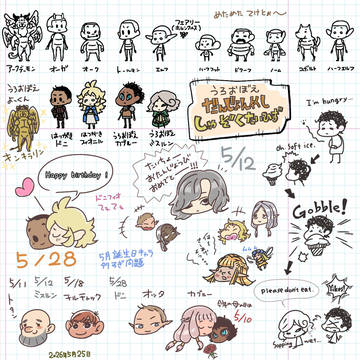 めためた てけとぉ〜
フェアリー
(ホムンクルス)
アークデーモン
オーガ
オーク
トールマン
エルフ
ハーフフット
ドワーフ
ノーム
コボルト
ハーフエルフ
うろおぼえ
よっくん
キンキラリン
はつがき
ドニ
はつがき
フィオニル
うろおぼえ
カブルー
うろおぼえ
ミスルン
うろおぼえ
だんじょんめし
しゅぞくたいひず
I'm hungry.
oh, soft ice.
Gobble!
please don't eat.
Yikes!
Happy birthday!
ドニフィオ
5/12
たいちょ
おたんじょうび
おめでとー!!!
5/28
5月誕生日キャラ
多すぎ問題
5/11
5/12
ミスルン
5/18
チルチャック
5/28
ドニ
オッタ
カブルー
5/10
2026年5月25日